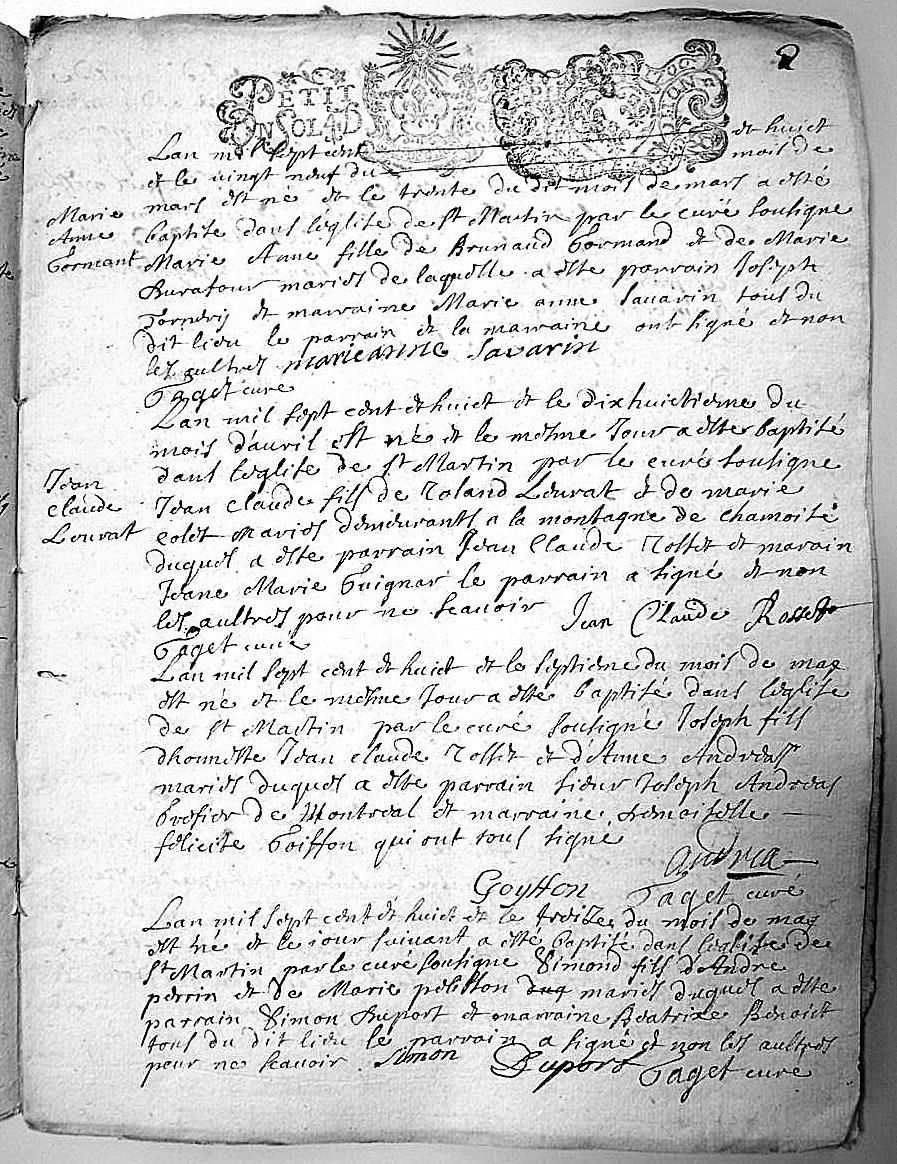 2
PETIT
Lan mil sept cent et huict
et le vingt neuf du mois de
mars est né et le trente du dit mois de mars a esté
baptisé dans léglise de St Martin par le curé souligne
Marie Anne fille de Brunaud Gormand et de Marie
Buratour mariés de laquelle a este parrain Joseph
et marraine Marie anne Savarin tous du
dit lieu le parrain et la marraine ont signé et non
les aultres marieanne Savarin
curé
Marie
Anne
Gormant
Lan mil sept cent et huict et le dixhuictiesme du
mois dauril est né et le mesme Jour a este baptisé
dans leglise de St Martin par le curé soubsigne
Jean Claude fils de Roland Leurat et de marie
colet mariés demeurants a la montagne de chamoise
duquel a este parrain Jean Claude Rosset et marain
Jeane Marie Guignar le parrain a signé et non
les aultres pour ne scavoir Jean Claude Rosset
curé
Jean
Claude
Leurat
Lan mil sept cent et huict et le septiene du mois de may
est né et le mesme Jour a esté baptisé dans leglise
de St Martin par le curé soubsigné Joseph fils
dhonneste Jean claude Rosset et d'Anne Andreas
mariés duquel a este parrain sieur Joseph Andreas
Grefier de Montreal et marraine Demoiselle
félicité Goiffon qui ont tous signe
Andrea
Goyffon curé
Lan mil sept cent et huict et le treize du mois de may
est né et le jour suivant a esté baptisé dans leglise de
St Martin par le curé soubsigne Simond fils d'Andre
perrin et de Marie peliston mariés duquel a este
parrain Simon Duport et marraine Beatrixe Benoict
tous du dit lieu le parrain a signé et non les aultres
pour ne scavoir Simon Duport curé